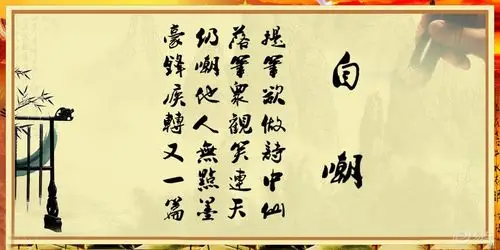 自嘲
提筆欲做詩中仙
落筆衆觀笑連天
仍嘲他人無點墨
豪鋒疾轉又一篇